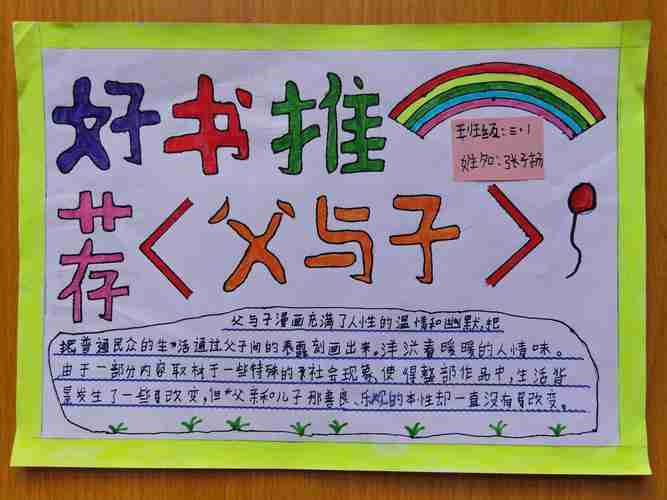 好书推
荐《父与子》
班级:三·1
姓名:张子
父与子漫画充满了人性的温情和幽默,把
把普通民众的生活通过父子间的表露刻画出来。洋溢着暖暖的人情味。
由于一部分内容取材于一些特殊的社会现象,使得整部作品中,生活背
景发生了一些改变,但父亲和儿子那善良、乐观的本性却一直没有改变。